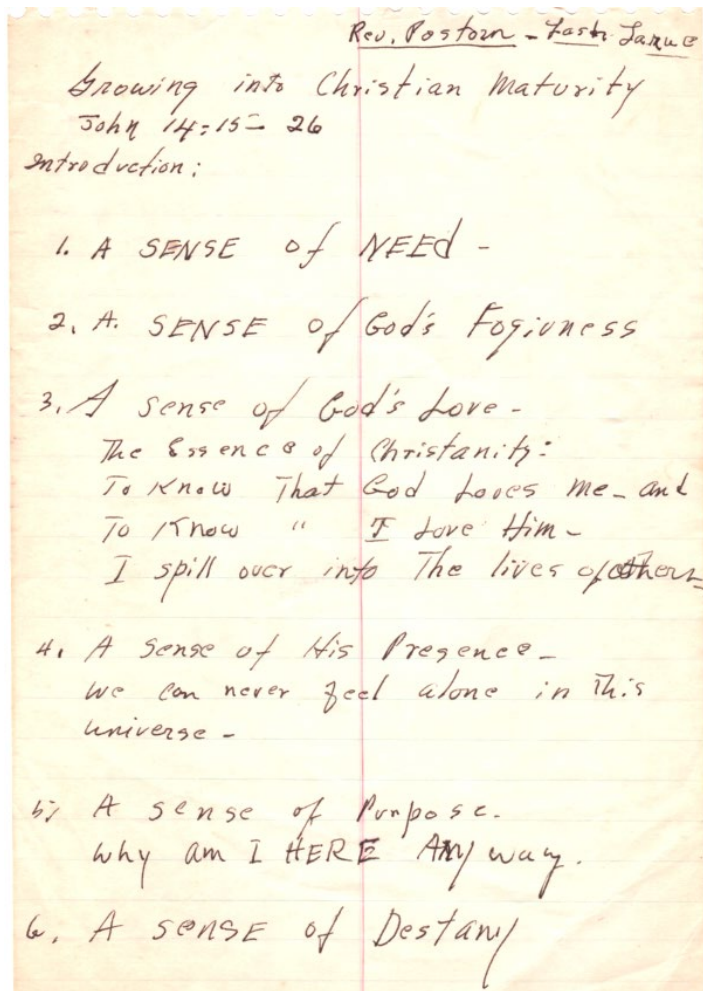 Rev. Postorn - Lash Larue
Growing into Christian Maturity
John 14:15- 26
Introduction:
1. A SENSE of NEEd -
2. A. SENSE of God's Fogivness
3. A sense of God's Love -
The Essence of Christanity:
To Know That God Loves me - and
To Know " I Love Him -
I spill over into The lives of others
4. A Sense of His Presence -
we can never feel alone in This
universe -
5. A sense of Purpose.
Why am I HERE ANy way.
6. A senSE of Destany